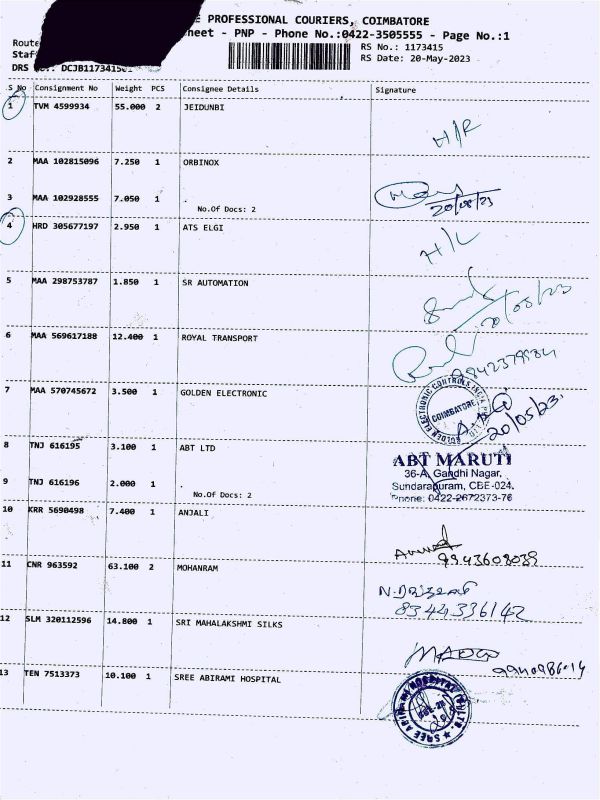 E PROFESSIONAL COURIERS, COIMBATORE
heet - PNP - Phone No.:0422-3505555 - Page No.:1
Route
RS No.: 1173415
Staf
RS Date: 20-May-2023
DRS
S No Consignment No Weight PCS Consignee Details Signature
1 TVM 4599934 55.000 2 JEIDUNBI
H/R
2 MAA 102815096 7.250 1 ORBINOX
3 MAA 102928555 7.050 1 .
No.Of Docs: 2
20/05/23
4 HRD 305677197 2.950 1 ATS ELGI
H/L
5 MAA 298753787 1.850 1 SR AUTOMATION
20/05/23
6 MAA 569617188 12.400 1 ROYAL TRANSPORT
7 MAA 570745672 3.500 1 GOLDEN ELECTRONIC
COIMBATORE
20/05/23.
8 TNJ 616195 3.100 1 ABT LTD
ABT MARUTI
36-A, Gandhi Nagar,
Sundarapuram, CBE-024.
Phone: 0422-2672373-76
9 TNJ 616196 2.000 1 .
No.Of Docs: 2
10 KRR 5690498 7.400 1 ANJALI
9943608039
11 CNR 963592 63.100 2 MOHANRAM
8344336142
12 SLM 320112596 14.800 1 SRI MAHALAKSHMI SILKS
13 TEN 7513373 10.100 1 SREE ABIRAMI HOSPITAL
SREE ABIRAMI HOSPITAL